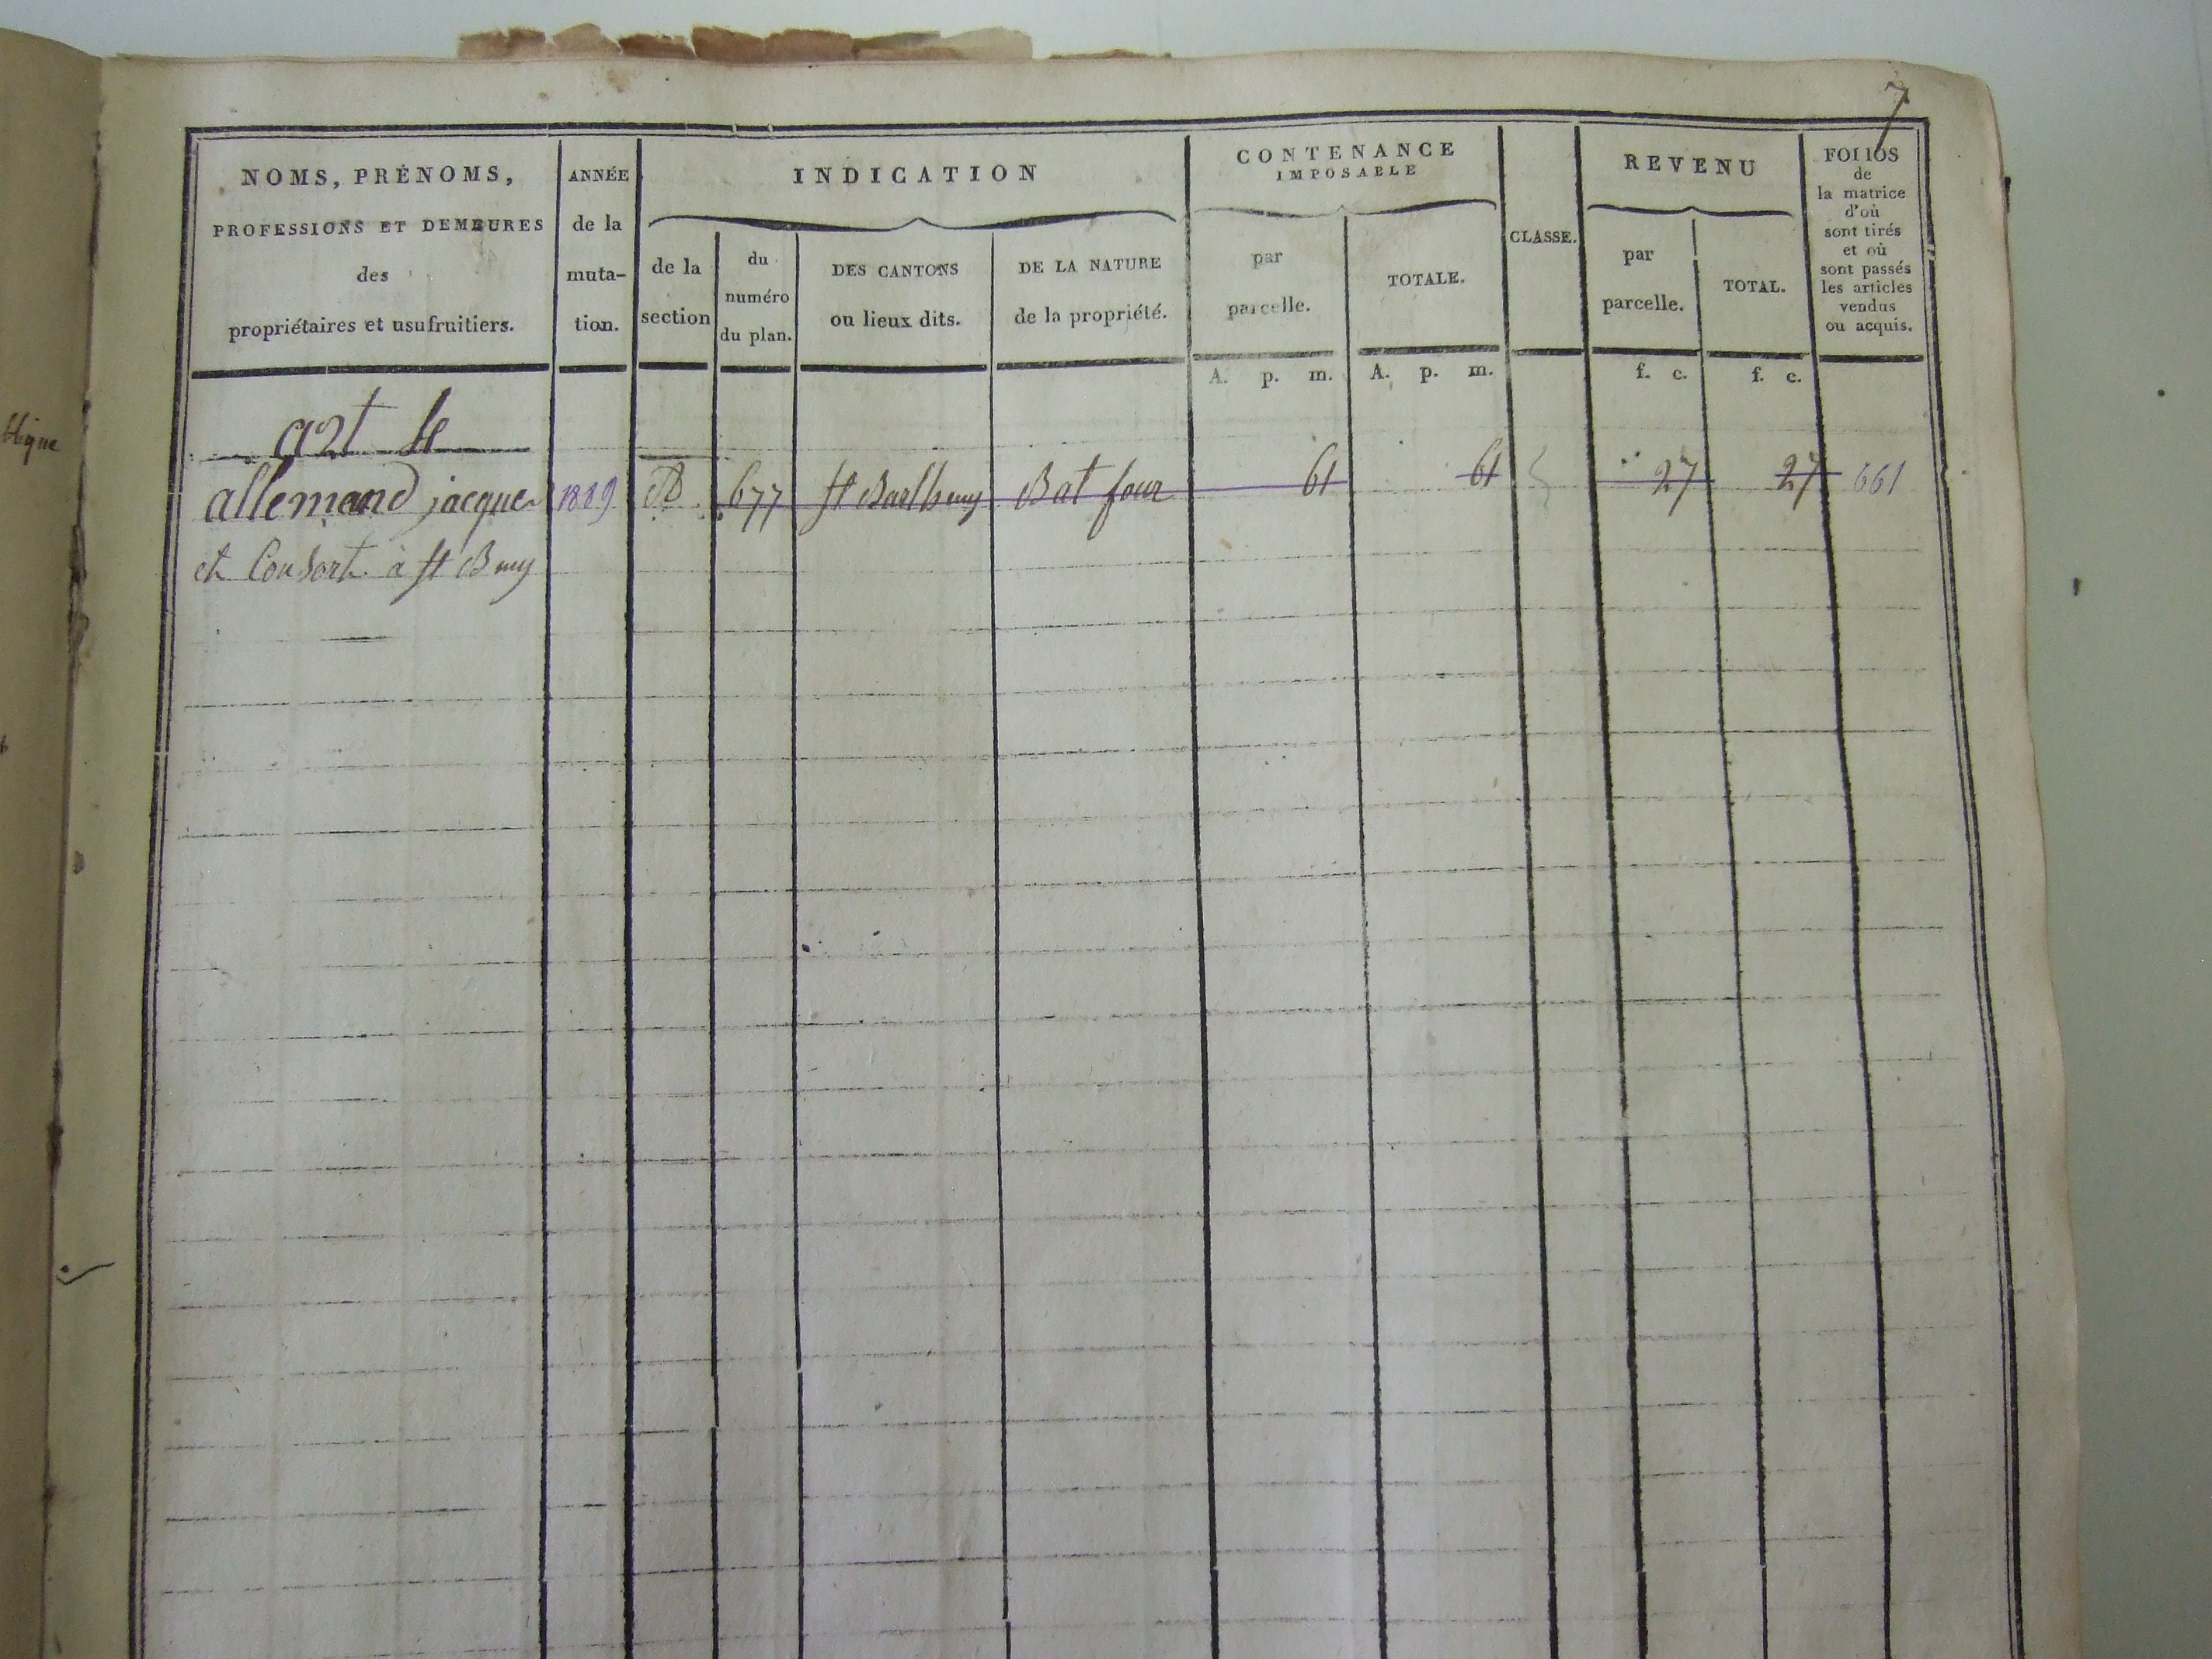 7
NOMS, PRÉNOMS,
PROFESSIONS ET DEMEURES
des
propriétaires et usufruitiers.
ANNÉE
de la
muta-
tion.
INDICATION
de la
section
du
numéro
du plan.
DES CANTONS
ou lieux dits.
DE LA NATURE
de la propriété.
CONTENANCE
IMPOSABLE
par
parcelle.
TOTALE.
CLASSE.
REVENU
par
parcelle.
TOTAL.
FOLIOS
de
la matrice
d'où
sont tirés
et où
sont passés
les articles
vendus
ou acquis.
A. p. m. A. p. m. f. c. f. c.
art 4
allemand jacques 1889 B 677 st Barthmy Bat four 61 61 27 27 661
et Consort à st Bmy
blique